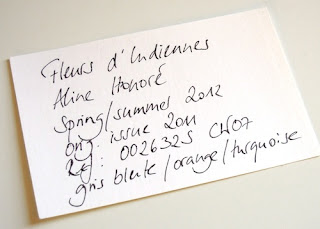 Fleurs d'Indiennes
Aline Honoré
Spring/summer 2012
orig. issue 2011
Ref: 002632S CW07
gris bleuté/orange/turquoise